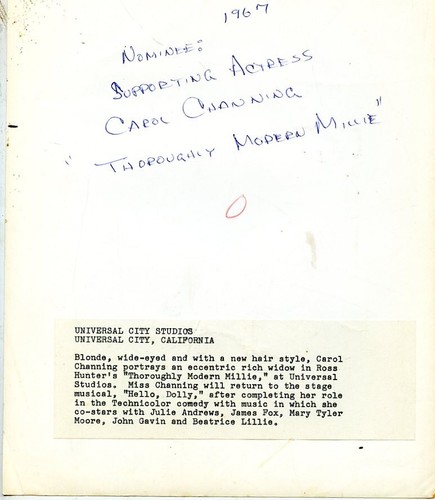 1967
Nominee:
Supporting Actress
Carol Channing
"Thoroughly Modern Millie"
UNIVERSAL CITY STUDIOS
UNIVERSAL CITY, CALIFORNIA
Blonde, wide-eyed and with a new hair style, Carol
Channing portrays an eccentric rich widow in Ross
Hunter's "Thoroughly Modern Millie," at Universal
Studios. Miss Channing will return to the stage
musical, "Hello, Dolly," after completing her role
in the Technicolor comedy with music in which she
co-stars with Julie Andrews, James Fox, Mary Tyler
Moore, John Gavin and Beatrice Lillie.